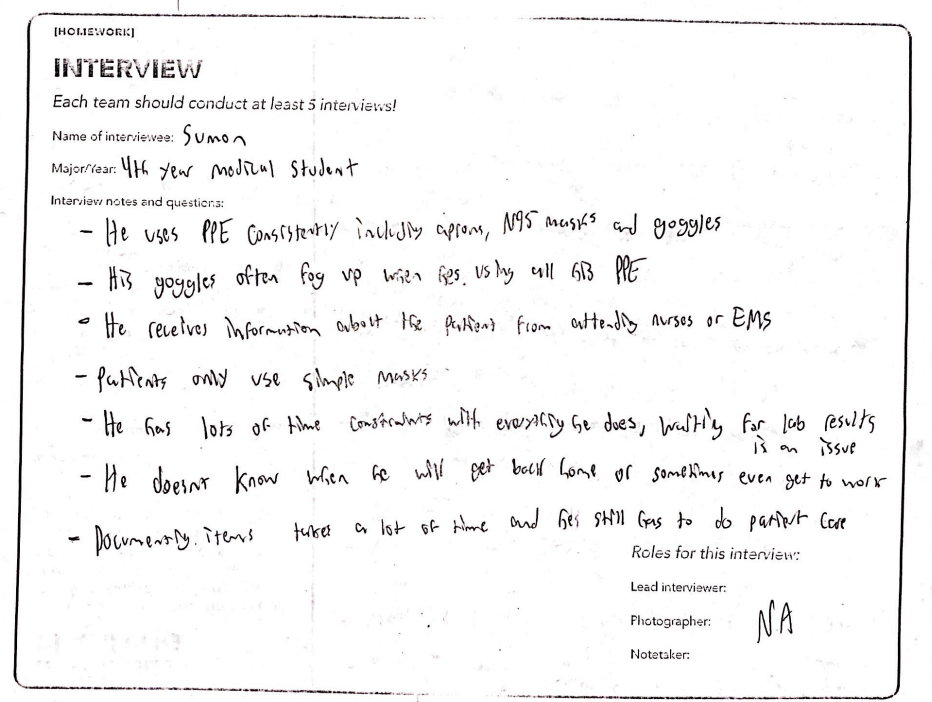 [HOMEWORK]
INTERVIEW
Each team should conduct at least 5 interviews!
Name of interviewee: Sumon
Major/Year: 4th year medical student
Interview notes and questions:
- He uses PPE consistently including aprons, N95 masks and goggles
- His goggles often fog up when hes using all his PPE
- He receives information about the patient from attending nurses or EMS
- Patients only use simple masks
- He has lots of time constraints with everything he does, waiting for lab results
is an issue
- He doesnt know when he will get back home or sometimes even get to work
- Documenting items takes a lot of time and hes still has to do patient care
Roles for this interview:
Lead interviewer:
Photographer: NA
Notetaker: